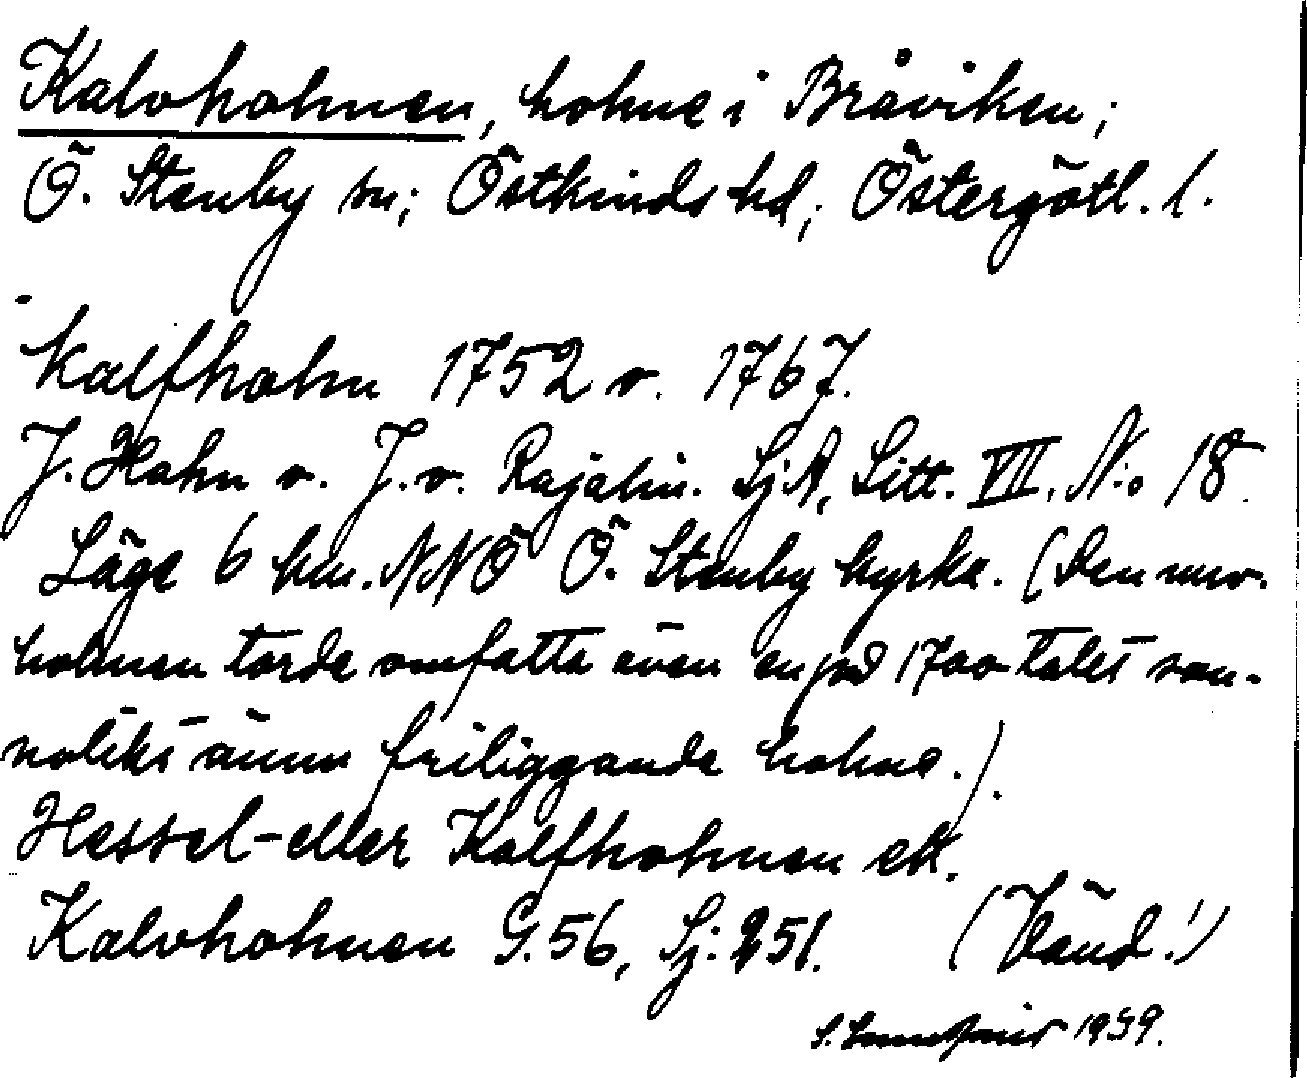 Kalvholmen, holme i Bråviken;
Ö. Stenby sn; Östkinds hd; Östergötl. l.
Kalfholm 1752 o. 1767.
J. Hahn o. J. v. Rajalin. SjA, Litt. VII, N:o 18.
Läge 6 km. NNÖ Ö. Stenby kyrka. (Den nuv.
holmen torde omfatta även en på 1700 talet san-
nolikt ännu friliggande holme.).
Hessel- eller Kalfholmen ek.
Kalvholmen G. 56, Sj: 251. (Vänd!)
S. 1939.